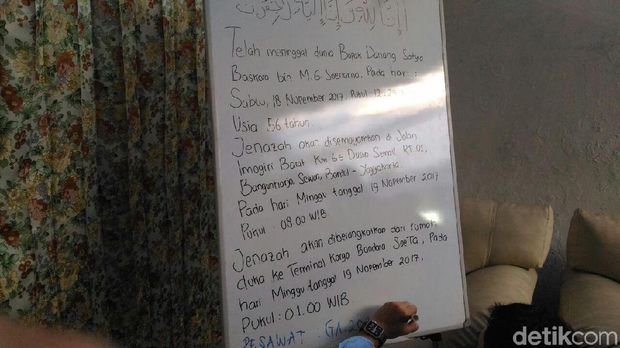 إنا لله وإنا إليه راجعون
Telah meninggal dunia Bapak Danang Satyo
Baskoro bin M.G Soenarno. Pada hari :
Sabtu, 18 Nopember 2017. Pukul 12.25
Usia 56 tahun.
Jenazah akan disemayamkan di Jalan
Imogiri Barat Km 6.5 Dusun Semail RT.05,
Bangunharjo, Sewon, Bantul - Yogyakarta.
Pada hari Minggu tanggal 19 Nopember 2017
Pukul : 09.00 WIB
Jenazah akan diberangkatkan dari rumah
duka ke Terminal Kargo Bandara SoeTa, Pada
hari Minggu tanggal 19 Nopember 2017,
Pukul : 01.00 WIB
PESAWAT : GA
detikcom